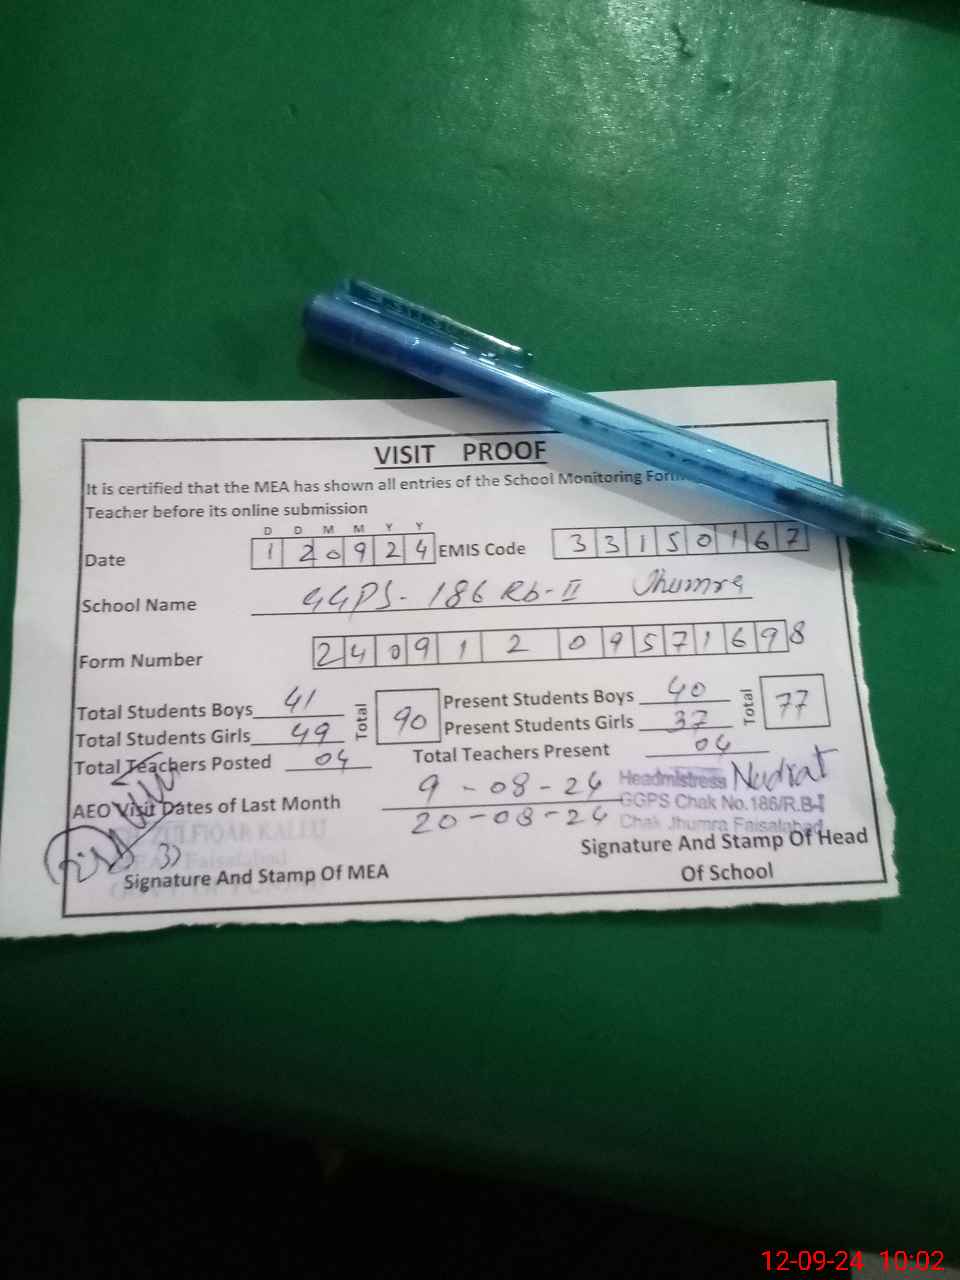 VISIT PROOF
It is certified that the MEA has shown all entries of the School Monitoring Form
Teacher before its online submission
D D M M Y Y
Date 1 2 0 9 2 4 EMIS Code 3 3 1 5 0 1 6 7
School Name GGPS- 186 Rb-II Jhumra
Form Number 2 4 0 9 1 2 0 9 5 7 1 6 9 8
Total Students Boys 41 Total 90 Present Students Boys 40 Total 77
Total Students Girls 49 Present Students Girls 37
Total Teachers Posted 04 Total Teachers Present 04
AEO Visit Dates of Last Month 9-08-24
20-08-24
Headmistress Nudrat
GGPS Chak No.186/R.B-I
Chak Jhumra Faisalabad
ZULFIQAR KALLU
Faisalabad
Signature And Stamp Of MEA
Signature And Stamp Of Head
Of School
12-09-24 10:02